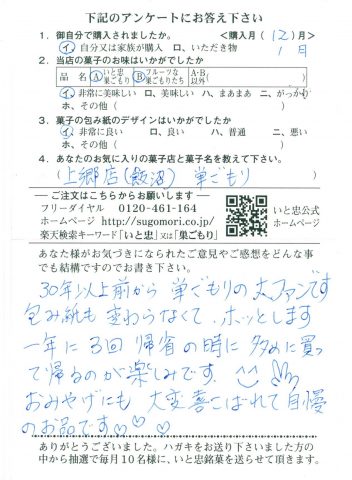 下記のアンケートにお答え下さい
1. 御自分で購入されましたか。 <購入月( 12 )月>
イ. 自分又は家族が購入 ロ. いただき物 1月
2. 当店の菓子のお味はいかがでしたか
品名 Ⓐいと忠巣ごもり Ⓑフルーツな巣ごもりたち A・B以外( )
イ. 非常に美味しい ロ. 美味しい ハ. まあまあ ニ. がっかり
ホ. その他( )
3. 菓子の包み紙のデザインはいかがでしたか
イ. 非常に良い ロ. 良い ハ. 普通 ニ. 悪い
ホ. その他( )
4. あなたのお気に入りの菓子店と菓子名を教えて下さい。
(上郷店(飯沼) 巣ごもり )
ご注文はこちらからお願いします
フリーダイヤル 0120-461-164
ホームページ http://sugomori.co.jp/
楽天検索キーワード「いと忠」又は「巣ごもり」
いと忠公式
ホームページ
あなた様がお気づきになられたご意見やご感想をどんな事
でも結構ですのでお書き下さい。
30年以上前から 巣ごもりの大ファンです
包み紙も 変わらなくて ホッとします
一年に3回 帰省の時に 多めに買っ
て帰るのが楽しみです。
おみやげにも 大変喜こばれて自慢
のお品です♡♡♡
ありがとうございました。ハガキをお送り下さいました方の
中から抽選で毎月10名様に、いと忠銘菓を送らせて頂きます。